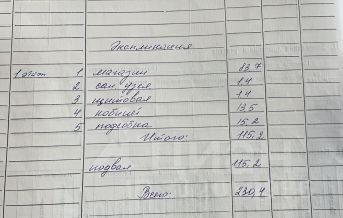 Экспликация
1 этаж 1 магазин 83,7
2 сан. узел 1,4
3 щитовая 1,4
4 кабинет 13,5
5 подсобка 15,2
Итого: 115,2
подвал 115,2
Всего: 230,4